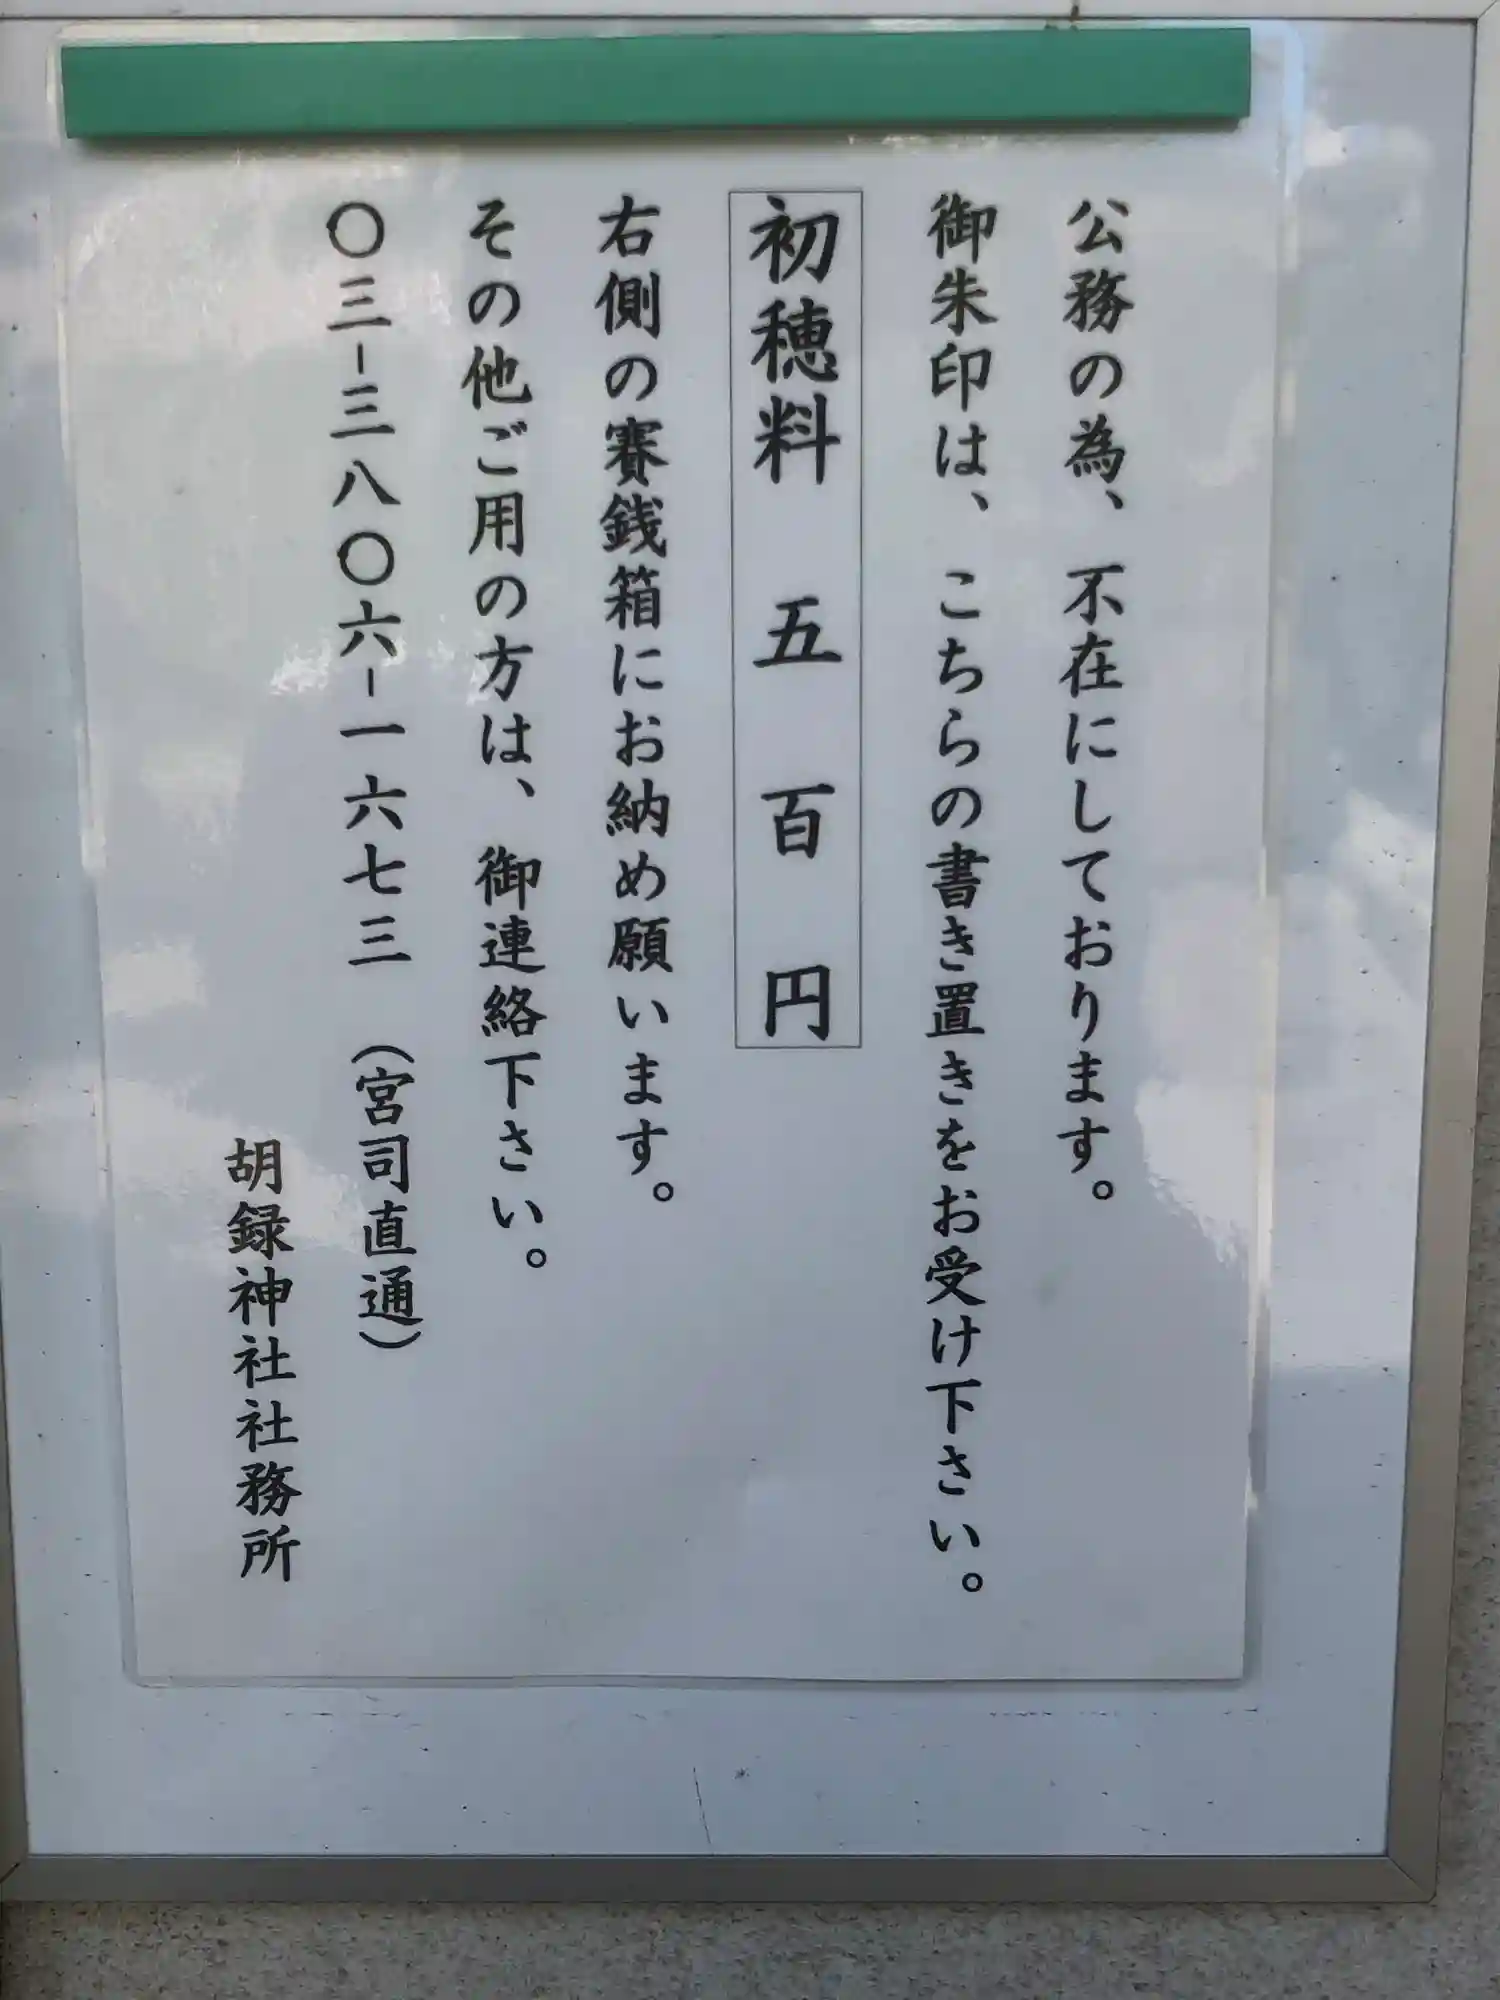 公務の為、不在にしております。
御朱印は、こちらの書き置きをお受け下さい。
初穂料 五百円
右側の賽銭箱にお納め願います。
その他ご用の方は、御連絡下さい。
〇三-三八〇六-一六七三（宮司直通）
胡録神社社務所